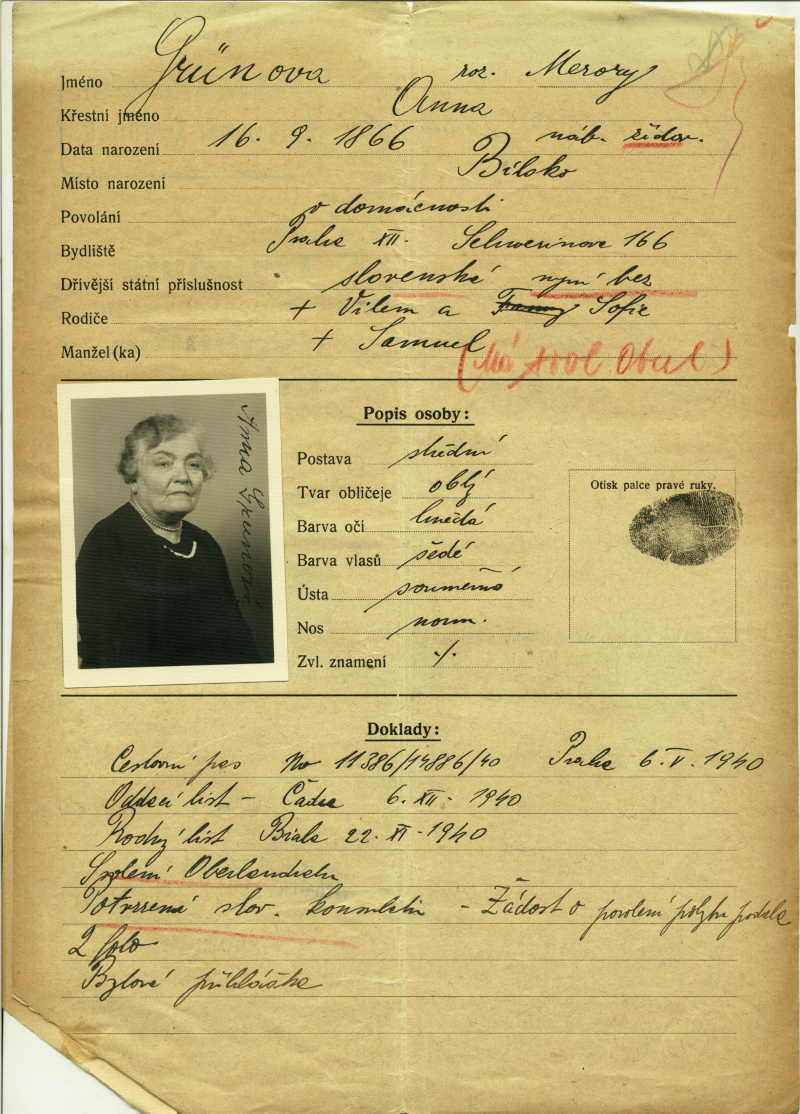 Jméno Grünova roz. Merory
Křestní jméno Anna
Data narození 16. 9. 1866 náb. židov.
Místo narození Bilsko
Povolání v domácnosti
Bydliště Praha XII. Schwerinova 166
Dřívější státní příslušnost slovenská nyní bez
Rodiče + Vilem a Sofie
Manžel(ka) + Samuel
(Má Obul)
Popis osoby:
Postava střední
Tvar obličeje oblý
Barva očí hnědá
Barva vlasů šedé
Ústa souměrná
Nos norm.
Zvl. znamení ./.
Otisk palce pravé ruky.
Anna Grünová
Doklady:
Cestovní pas No 11386/14886/40 Praha 6. V. 1940
Oddací list - Čadca 6. XII. 1940
Rodný list Biala 22. XI. 1940
Oberlandratu
Potvrzená slov. konsulatu - Žádost o povolení pobytu podala
2 foto
Bytová přihláška